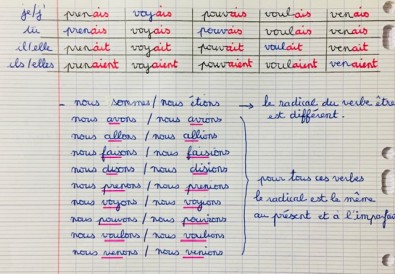 je/j' prenais voyais pouvais voulais venais
tu prenais voyais pouvais voulais venais
il/elle prenait voyait pouvait voulait venait
ils/elles prenaient voyaient pouvaient voulaient venaient
- nous sommes / nous étions → le radical du verbe être
est différent.
nous avons / nous avions
nous allons / nous allions
nous faisons / nous faisions
nous disons / nous disions
nous prenons / nous prenions
nous voyons / nous voyions
nous pouvons / nous pouvions
nous voulons / nous voulions
nous venons / nous venions
pour tous ces verbes
le radical est le même
au présent et à l'imparfait